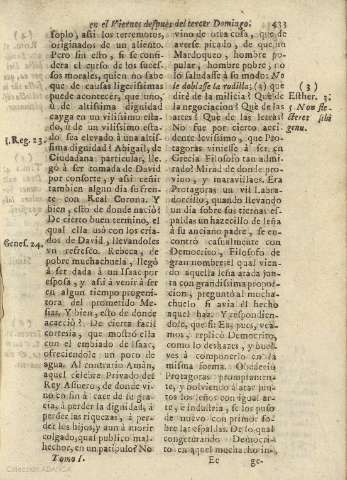 en el Viernes despues del tercer Domingo. 433
soplo, assi los terremotos,
originados de un aliento.
Pero sin esto, si se consi-
dera el curso de los suces-
sos morales, quien no sabe
que de causas ligerissimas
puede acontecer, que uno,
ù de altissima dignidad
cayga en un vilissimo esta-
do, ù de un vilissimo esta-
do sea elevado à una altis-
sima dignidad? Abigail, de
Ciudadana particular, lle-
gò à ser tomada de David
por consorte, y assi ceñir
tambien algun dia su fren-
te con Real Corona. Y
bien, esto de donde nació?
De cierto buen termino, el
qual ella usò con los cria-
dos de David, llevandoles
un refresco. Rebeca, de
pobre muchachuela, llegò
à ser dada à un Isaac por
esposa, y assi à venir à ser
en algun tiempo progeni-
tora del prometido Me-
sias. Y bien, esto de donde
acaeciò? De cierta facil
cortesia, que mostrò ella
con el embiado de Isac,
ofreciendole un poco de
agua. Al contrario Amàn,
aquel celebre Privado del
Rey Assuero, de donde vi-
no en fin à caer de su gra-
cia, à perder la dignidad, à
perder las riquezas, à per-
der los hijos, y aun à morir
colgado, qual publico mal-
hechor, en un patibulo? No
Tomo I.
1. Reg. 25.
Genes. 24.
vino de otra cosa, que de
averse picado, de que un
Mardoqueo, hombre po-
pular, hombre pobre, no
lo saludasse à su modo: Ne
se doblasse la rodilla; (3) que
dirè de la milicia? Què de
la negociacion? Què de las
artes? Què de las letras?
No fue por cierto acci-
dente levissimo, que Pro-
tagoras viniesse à ser en
Grecia Filosofo tan admi-
rado? Mirad de donde pro-
vino, y maravillaos. Era
Protagoras un vil Labra-
dorcillo; quando llevando
un dia sobre sus tiernas es-
paldas un hazecillo de leña
à su anciano padre, se en-
contrò casualmente con
Democrito, Filosofo de
gran nombre: el qual vien-
do aquella leña atada jun-
ta con grandissima propor-
cion, preguntò al mucha-
chuelo si avia èl hecho
aquel haz. Y respondien-
dole, que si: Ea pues, vea-
mos, replicò Democrito,
como lo deshazes, y buel-
ves à componerlo en la
misma forma. Obedeciò
Protagoras promptamen-
te, y bolviendo à atar jun-
tos los leños con igual ar-
te, è industria, se los puso
de nuevo con primor so-
bre las espaldas. De lo qual
congeturando Democri-
to en aquel muchacho in-
Ee ge-
(3)
Esther. 3.
Colección ABANCA